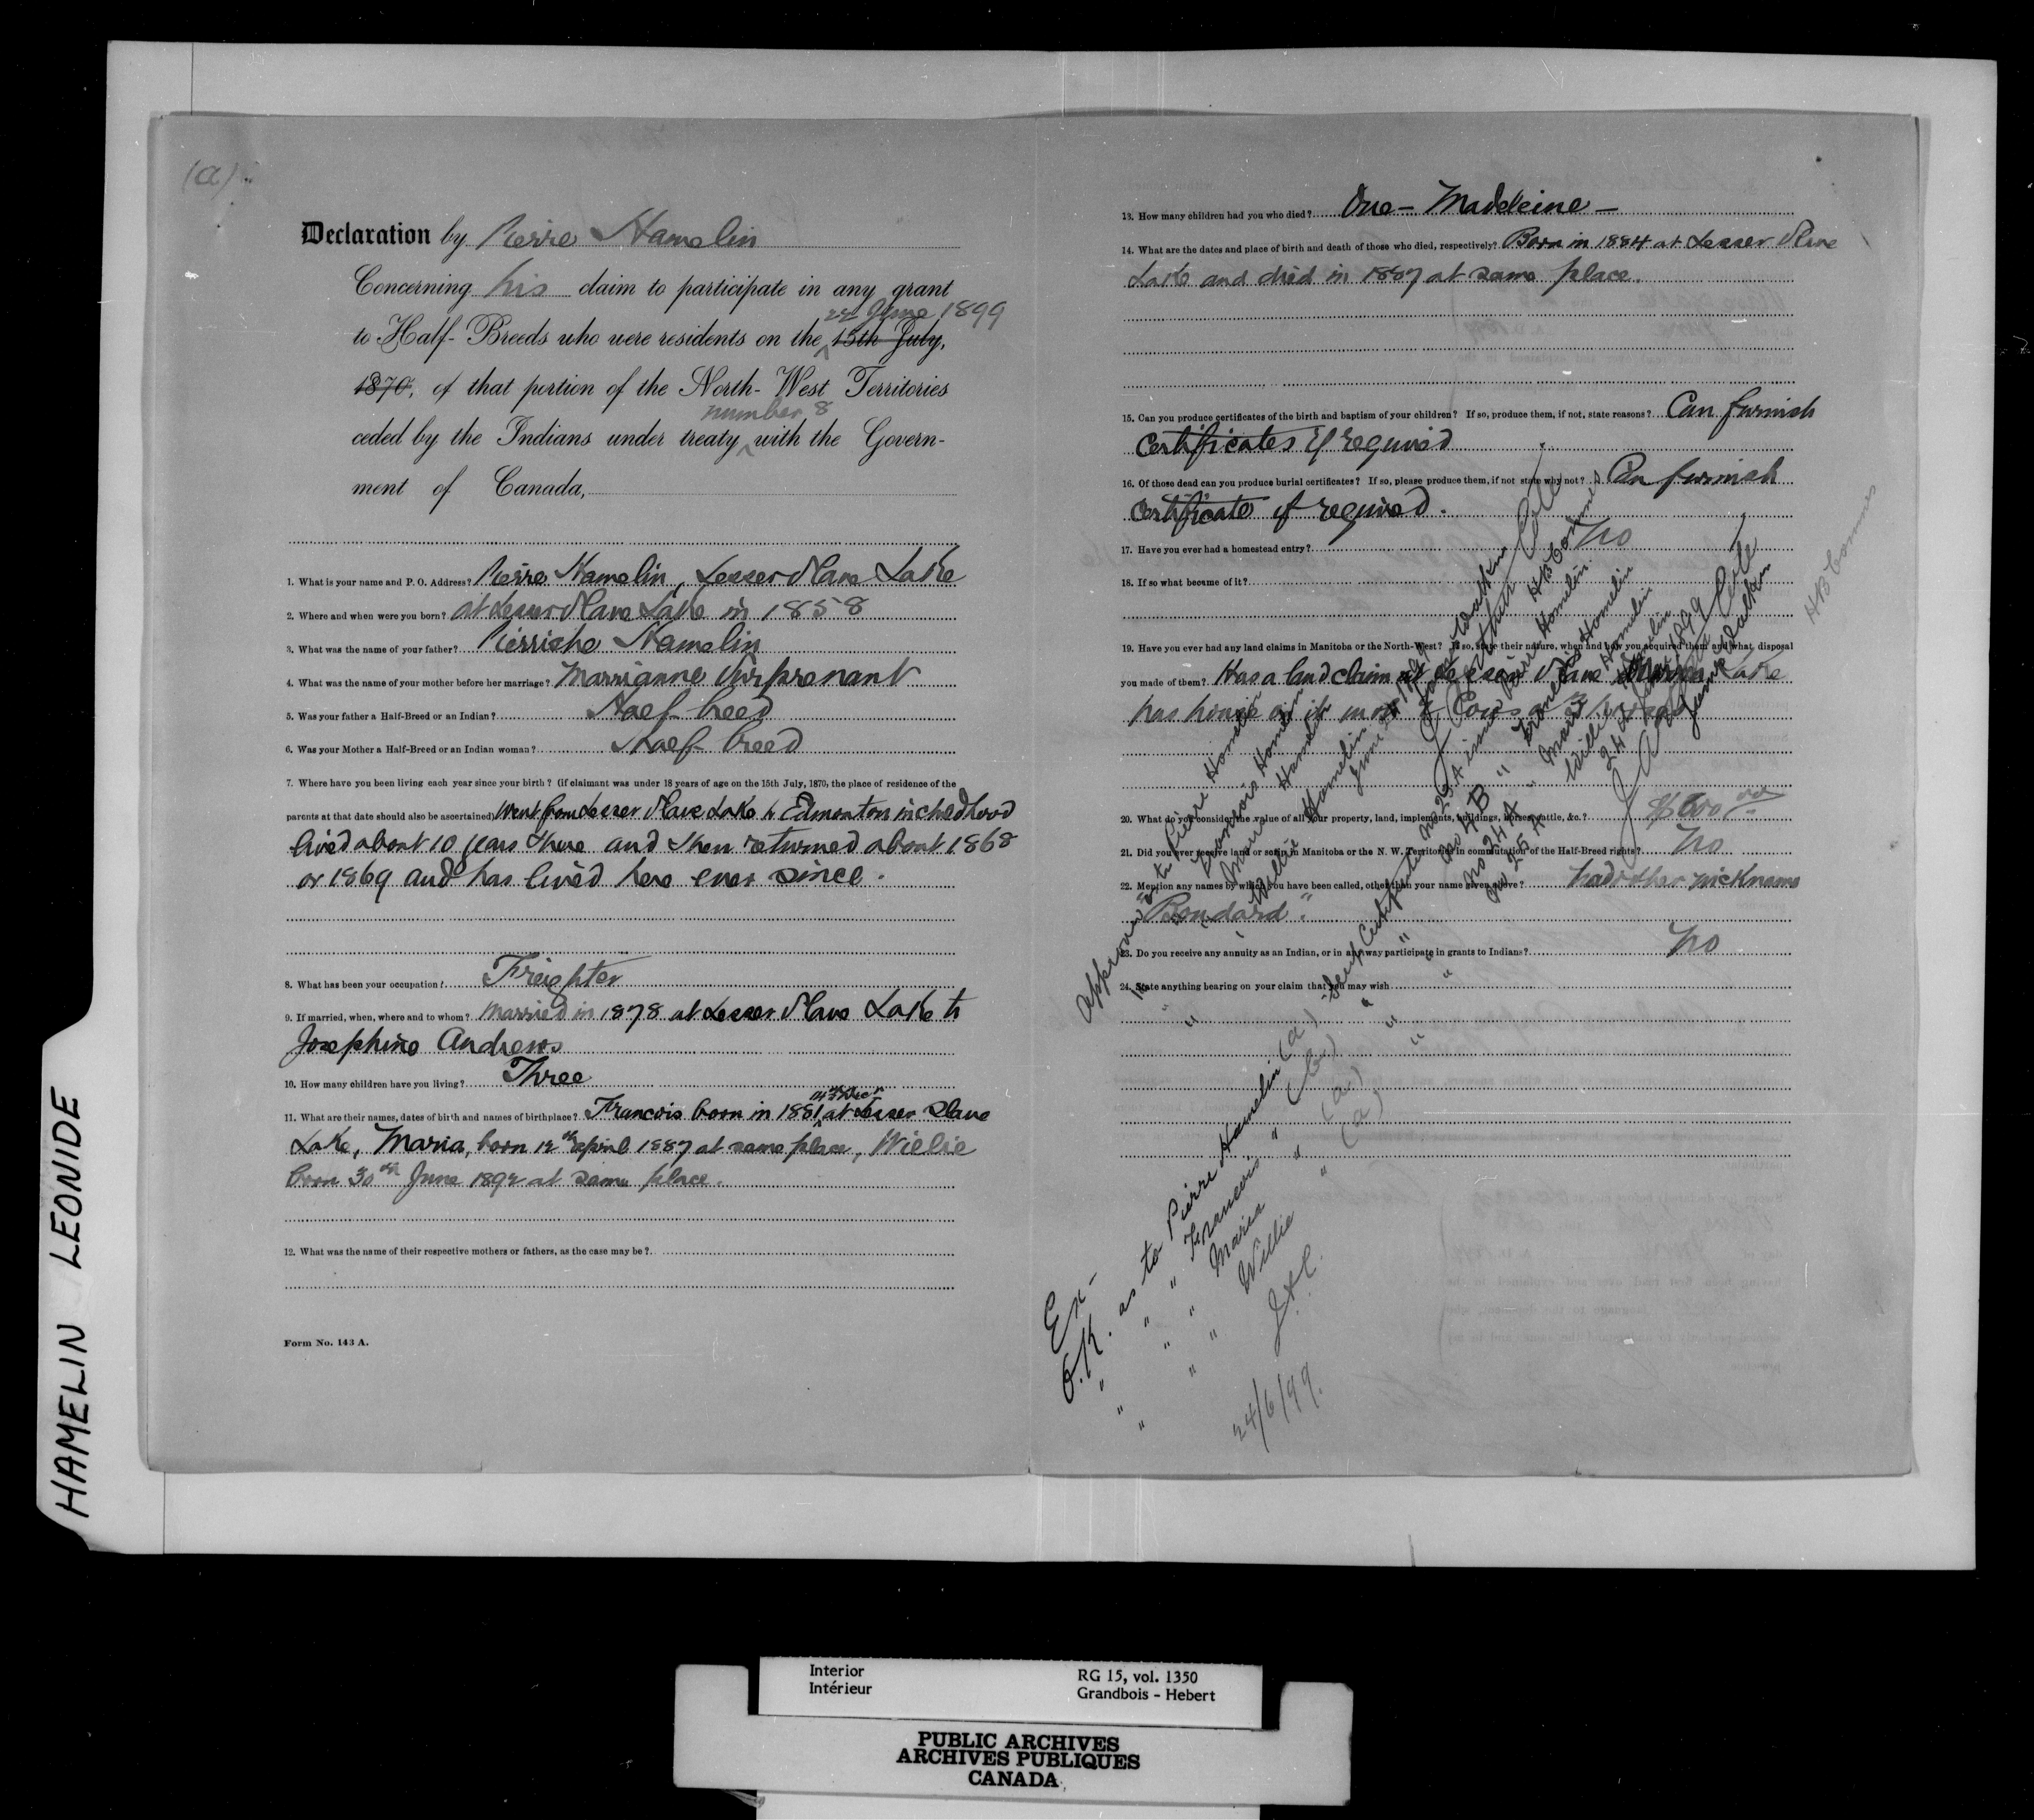 (a)
Declaration by Pierre Hamelin
Concerning his claim to participate in any grant
22 June 1899
to Half-Breeds who were residents on the 15th July,
1870, of that portion of the North-West Territories
number 8
ceded by the Indians under treaty with the Govern-
ment of Canada,
1. What is your name and P. O. Address? Pierre Hamelin, Lesser Slave Lake
2. Where and when were you born? at Lesser Slave Lake in 1858
3. What was the name of your father? Pierriche Hamelin
4. What was the name of your mother before her marriage? Marrianne
5. Was your father a Half-Breed or an Indian? Half-breed
6. Was your Mother a Half-Breed or an Indian woman? Half-breed
7. Where have you been living each year since your birth? (if claimant was under 18 years of age on the 15th July, 1870, the place of residence of the
parents at that date should also be ascertained) Went from Lesser Slave Lake to Edmonton in childhood
lived about 10 years there and then returned about 1868
or 1869 and has lived here ever since.
8. What has been your occupation? Freighter
9. If married, when, where and to whom? Married in 1878 at Lesser Slave Lake to
Josephine Andrews
10. How many children have you living? Three
11. What are their names, dates of birth and names of birthplace? Francois born in 1881 at Lesser Slave
Lake, Maria, born 12th april 1887 at same place, Willie
born 30th June 1892 at same place.
12. What was the name of their respective mothers or fathers, as the case may be?
Form No. 143 A.
13. How many children had you who died? One - Madeleine -
14. What are the dates and place of birth and death of those who died, respectively? Born in 1884 at Lesser Slave
Lake and died in 1887 at same place.
15. Can you produce certificates of the birth and baptism of your children? If so, produce them, if not, state reasons? Can furnish
Certificates if required
16. Of those dead can you produce burial certificates? If so, please produce them, if not state why not? Can furnish
Certificate if required.
17. Have you ever had a homestead entry? No
18. If so what became of it?
19. Have you ever had any land claims in Manitoba or the North-West? If so, state their nature, when and how you acquired them and what disposal
you made of them? Has a land claim at Lesser Slave Lake
has house on it
20. What do you consider the value of all your property, land, implements, buildings, horses, cattle, &c.? $600.00
21. Did you ever receive land or scrip in Manitoba or the N. W. Territories in commutation of the Half-Breed rights? No
22. Mention any names by which you have been called, other than your name given above? had other nickname
"Bondard".
23. Do you receive any annuity as an Indian, or in any way participate in grants to Indians? No
24. State anything bearing on your claim that you may wish
approved as to Pierre Hamelin
" " Francois Hamelin
" " Marie Hamelin
" " Willie Hamelin
Ex-
O.K. as to Pierre Hamelin (a)
" " " Francois " (b)
" " " Maria " (a)
" " " Willie " (a)
J.A.C.
24/6/99.
HAMELIN LEONIDE
Interior
Intérieur
RG 15, vol. 1350
Grandbois - Hebert
PUBLIC ARCHIVES
ARCHIVES PUBLIQUES
CANADA